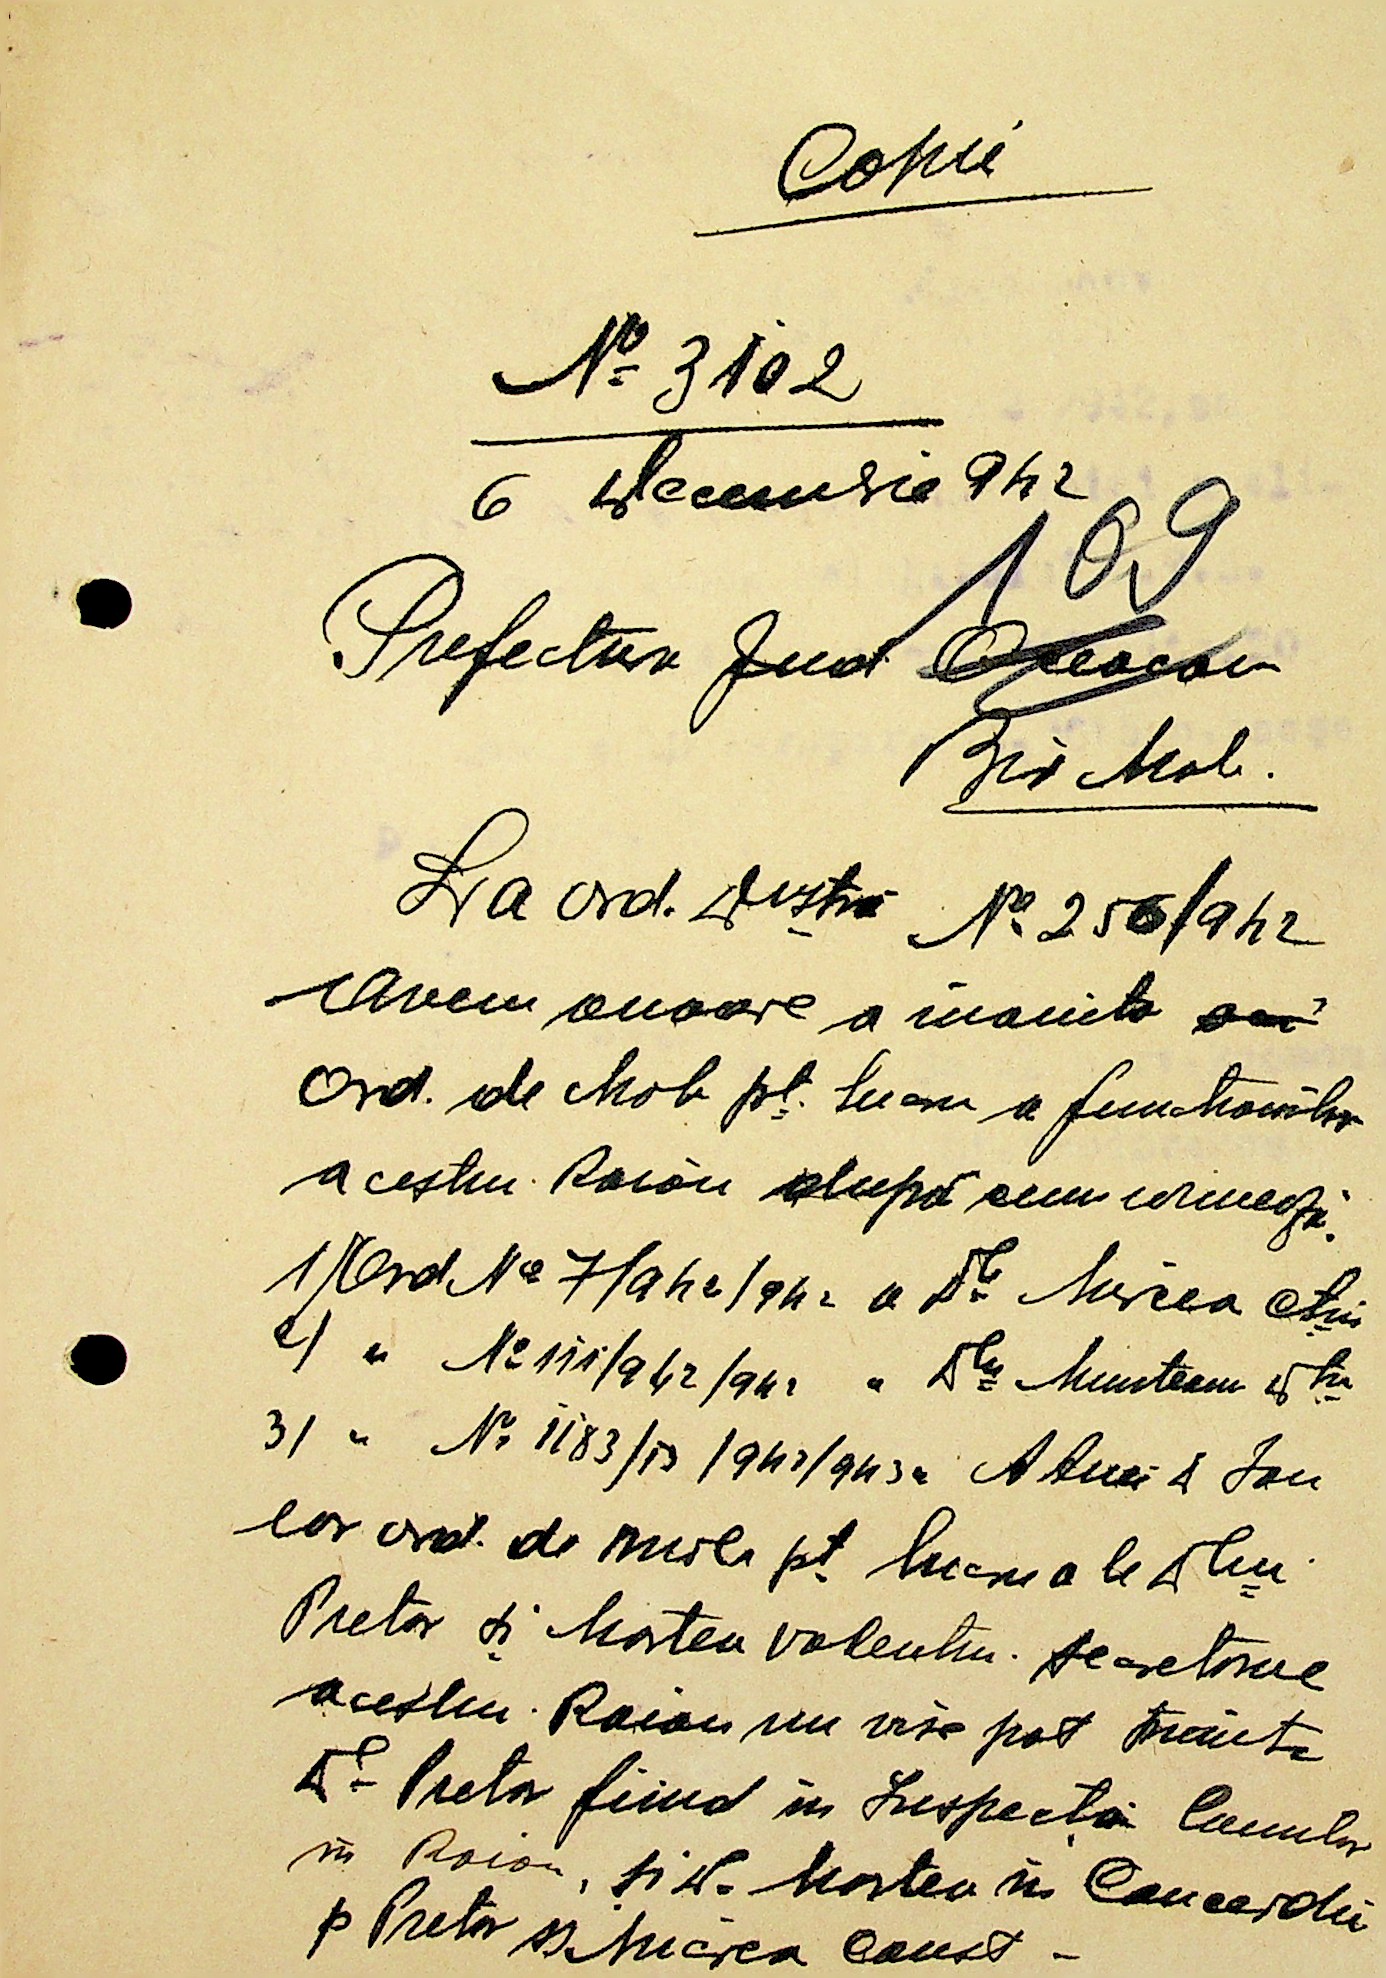 Copie
No 3102
6 Decembrie 942
109
Prefectura Jud. Oceacov
Bir Mob.
La ord. Dvstră No. 256/942
Avem onoare a înainta
Ord. de Mob pt. lucru a functionarilor
acestui Raion după cum urmează.
1) Ord No 7/942/942 a Dlui Mircea Ctin
2) " No 111/942/942 " Dlui Munteanu Dtru
3) " No 1183/19/942/943 " A Ion
iar ord. de mob pt lucru ale Dlui
Pretor și Mortea Valentin secretarul
acestui Raion nu vise pot trimite
Dl Pretor fiind în Inspecția Comunelor
în Raion, și Dl Mortea în Concediu
p Pretor ss Mircea Const -